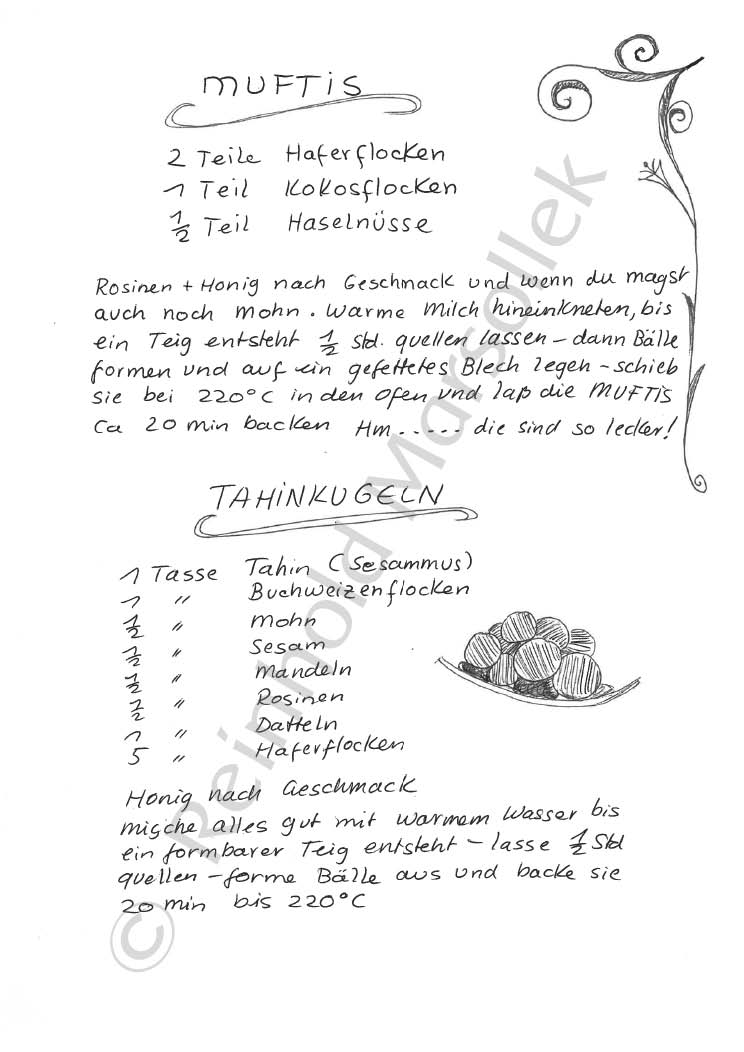 MUFTIS
2 Teile Haferflocken
1 Teil Kokosflocken
1/2 Teil Haselnüsse
Rosinen + Honig nach Geschmack und wenn du magst
auch noch Mohn. Warme Milch hineinkneten, bis
ein Teig entsteht 1/2 Std. quellen lassen – dann Bälle
formen und auf ein gefettetes Blech legen – schieb
sie bei 220°C in den Ofen und laß die MUFTIS
Ca 20 min backen Hm..... die sind so lecker!
TAHINKUGELN
1 Tasse Tahin (Sesammus)
1 " Buchweizenflocken
1/2 " Mohn
1/2 " Sesam
1/2 " Mandeln
1/2 " Rosinen
1 " Datteln
5 " Haferflocken
Honig nach Geschmack
mische alles gut mit warmem Wasser bis
ein formbarer Teig entsteht – lasse 1/2 Std
quellen – forme Bälle aus und backe sie
20 min bis 220°C
© Reinhold Marsollek